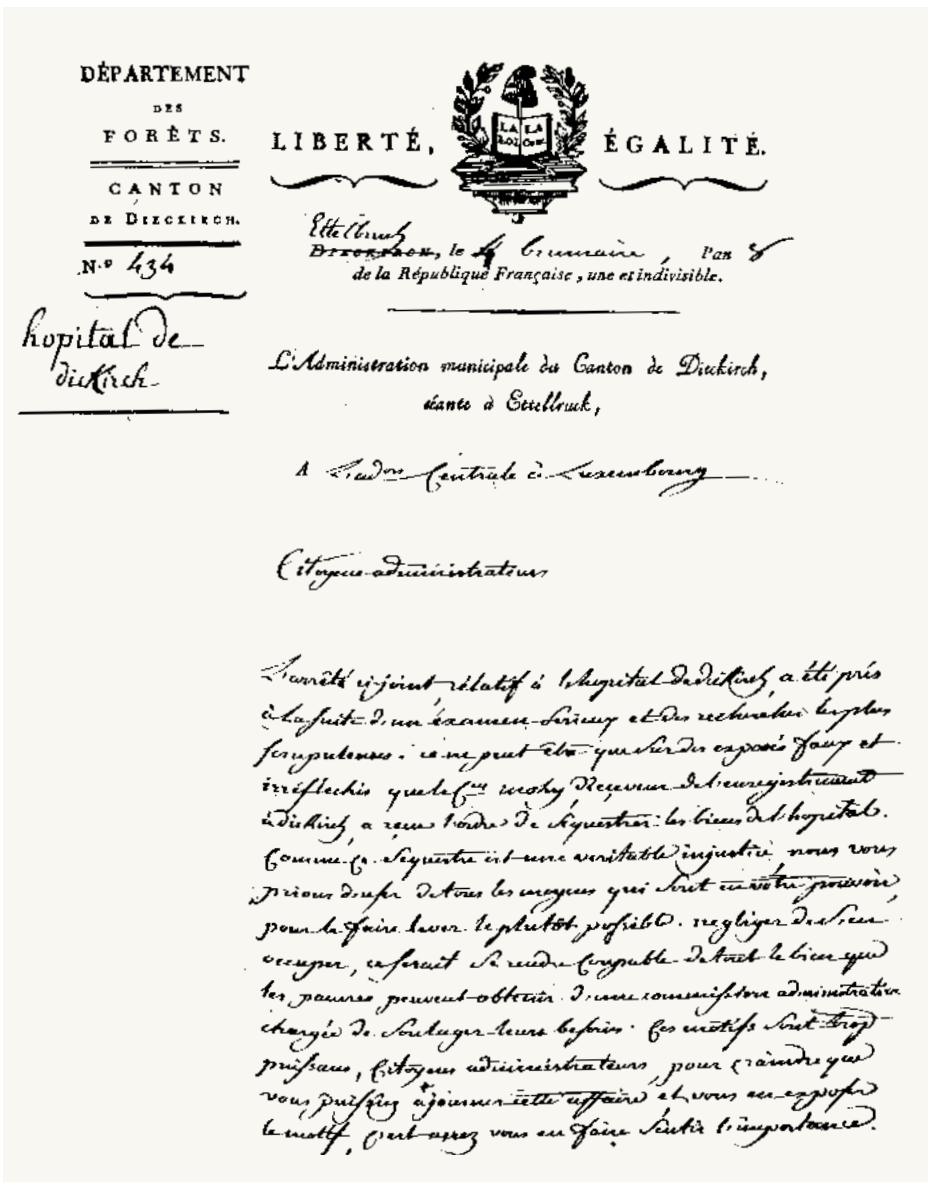 DÉPARTEMENT
DES
FORÊTS.
CANTON
DE DIECKIRCH.
N.º 434
hopital de
diekirch
LIBERTÉ,
LA LOI
LA Con.
ÉGALITÉ.
Ettelbruck
DIECKIRCH, le 4 brumaire, l'an 8
de la République Française, une et indivisible.
L'Administration municipale du Canton de Dieckirch,
séante à Ettelbruck,
A L'adon Centrale à Luxembourg
Citoyens administrateurs
L'arrêté ci-joint, rélatif à l'hopital de diekirch, a été pris
à la suite d'un éxamen serieux et des recherches les plus
scrupuleuses: ce ne peut être que sur des exposés faux et
irréflechis que le Cen mohy Receveur de l'enregistrement
à diekirch, a reçu l'ordre de séquestrer les biens de l'hopital.
Comme ce sequestre est une veritable injustice, nous vous
prions d'user de tous les moyens qui sont en vôtre pouvoir,
pour le faire lever le plutôt possible. negliger de s'en
occuper, ce serait se rendre coupable de tout le bien que
les pauvres peuvent obtenir d'une commission administrative
chargée de soulager leurs besoins. Ces motifs sont trop
puissans, Citoyens administrateurs, pour craindre que
vous puissiez ajourner cette affaire et vous en exposer
le motif, c'est assez vous en faire sentir l'importance.